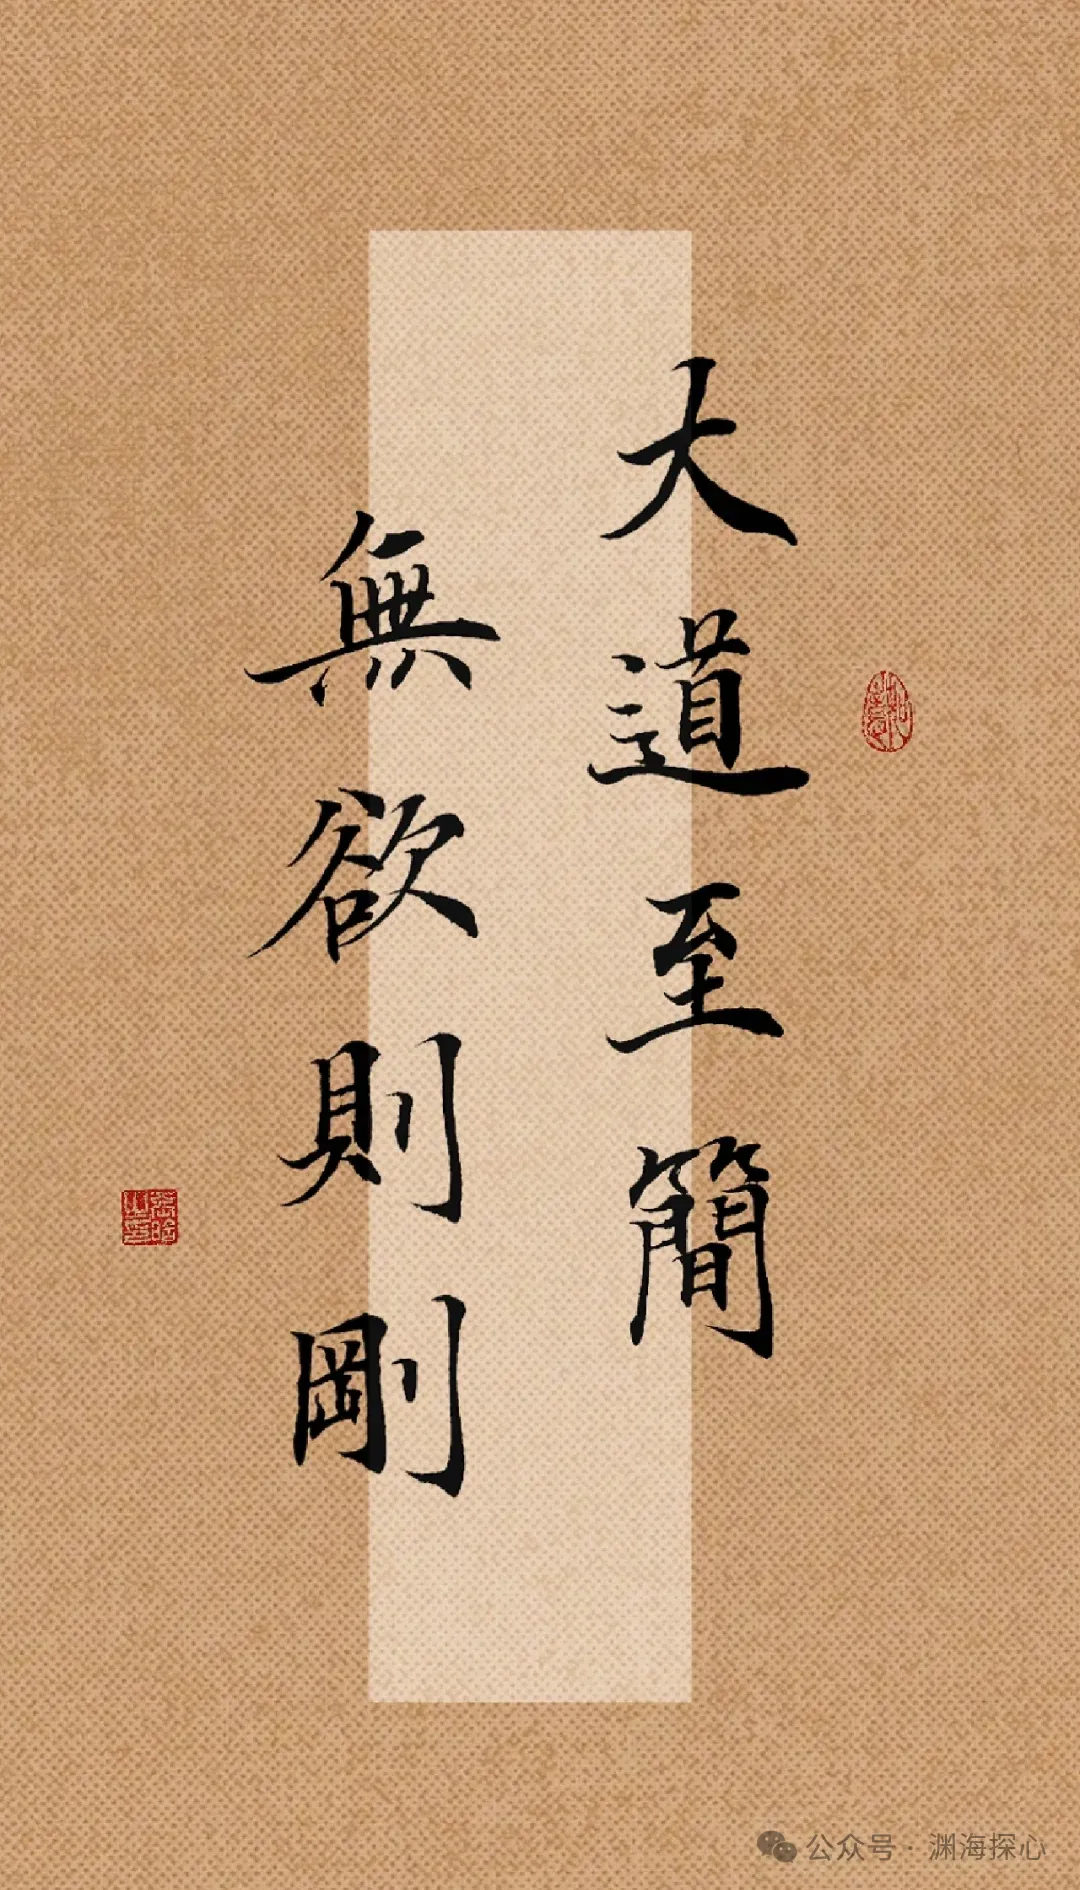 大道至簡
無欲則剛
公众号·渊海探心